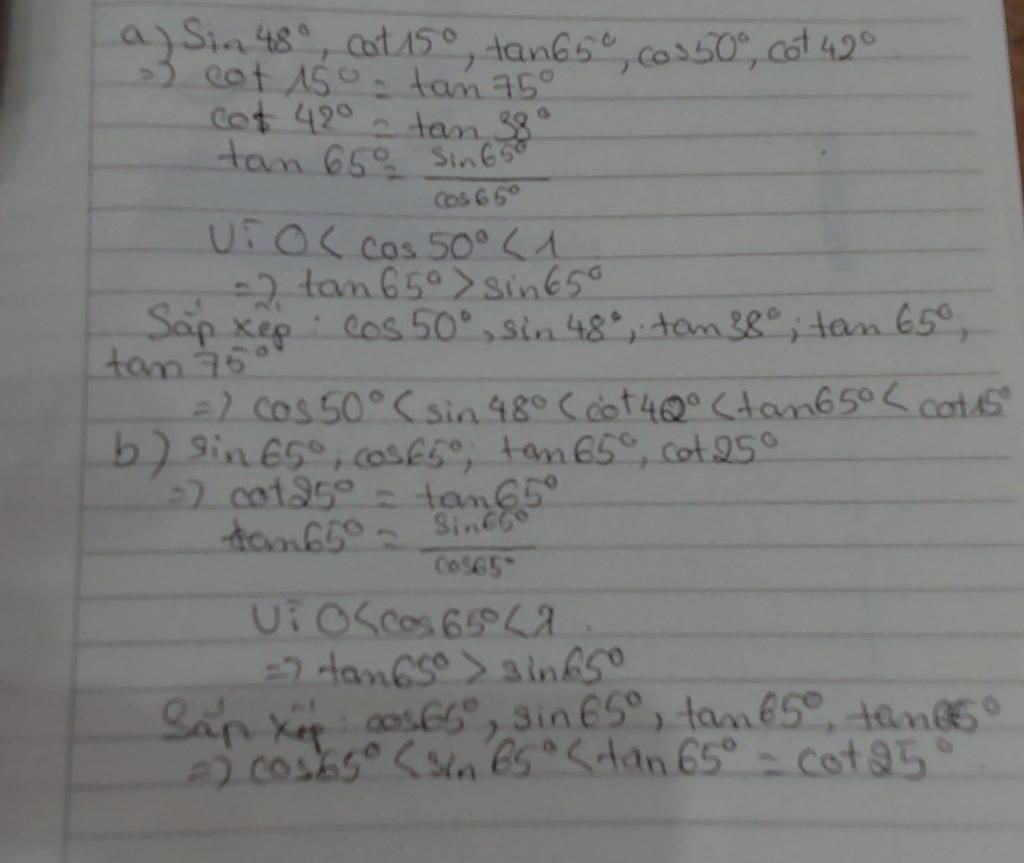 a) Sin 48°, cot 15°, tan 65°, cos 50°, cot 42°
=> cot 15° = tan 75°
cot 42° = tan 38°
tan 65° = sin 65°
cos 65°
Vì 0 < cos 50° < 1
=> tan 65° > sin 65°
Sắp xếp : cos 50°, sin 48°, tan 38°; tan 65°,
tan 75°
=> cos 50° < sin 48° < cot 42° < tan 65° < cot 15°
b) sin 65°; cos 65°; tan 65°, cot 25°
=> cot 25° = tan 65°
tan 65° = sin 65°
cos 65°
Vì 0 < cos 65° < 1.
=> tan 65° > sin 65°
Sắp xếp : cos 65°, sin 65°, tan 65°, tan 65°
=> cos 65° < sin 65° < tan 65° = cot 25°